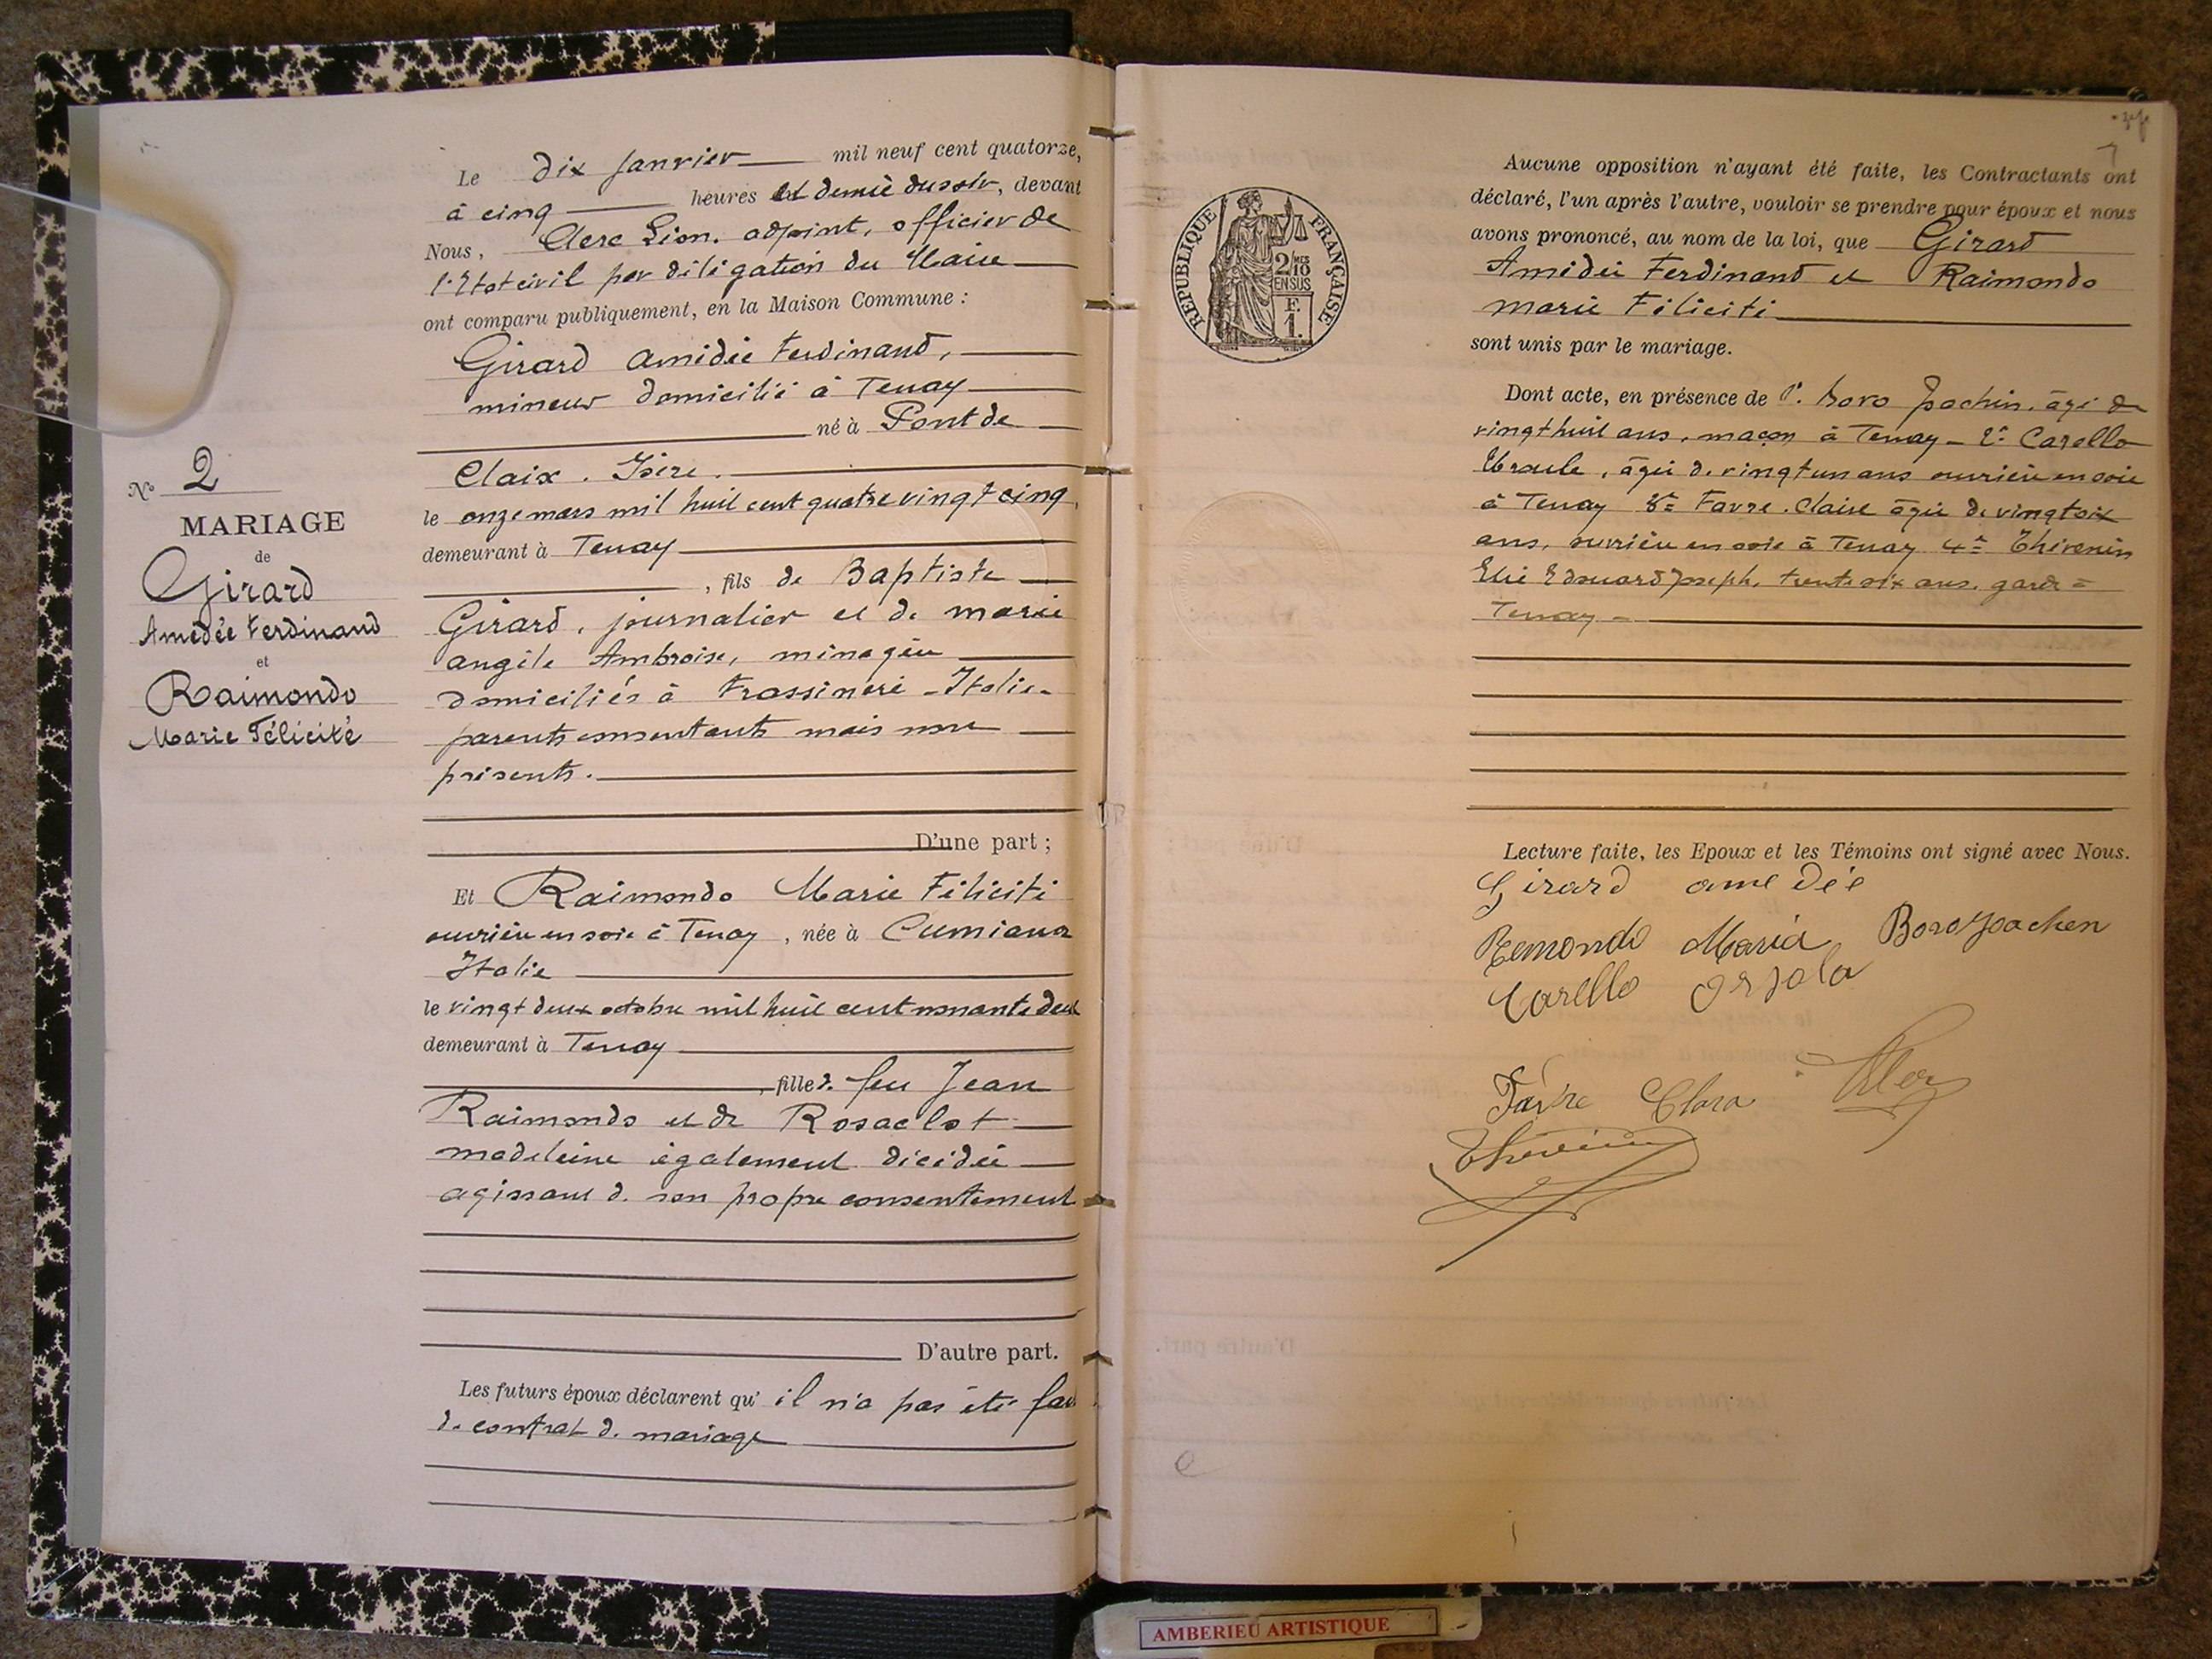 Le dix janvier mil neuf cent quatorze,
à cinq heures et demie du soir, devant
Nous, Clerc Léon. adjoint, officier de
l'Etat civil par déligation du Maire
ont comparu publiquement, en la Maison Commune :
Girard Amédée Ferdinand,
mineur domicilié à Tenay
né à Pont de
Claix. Isère.
le onze mars mil huit cent quatre vingt cinq,
demeurant à Tenay
, fils de Baptiste
Girard, journalier et de marie
angèle Ambroise, ménagère
domiciliés à Frassinère - Italie-
parents consentants mais non
présents.
D'une part ;
Et Raimondo Marie Félicité
ouvrière en soie à Tenay, née à Cumiana
Italie
le vingt deux octobre mil huit cent nonante deux
demeurant à Tenay
, fille de feu Jean
Raimondo et de Rosaclot
madeleine également décédée
agissant de son propre consentement
D'autre part.
Les futurs époux déclarent qu'il n'a pas été fait
de contrat de mariage
No 2
MARIAGE
de
Girard
Amédée Ferdinand
et
Raimondo
Marie Félicité
7
REPUBLIQUE FRANÇAISE
2/10MES
EN SUS
F.
1.
Aucune opposition n'ayant été faite, les Contractants ont
déclaré, l'un après l'autre, vouloir se prendre pour époux et nous
avons prononcé, au nom de la loi, que Girard
Amédée Ferdinand et Raimondo
marie Félicité
sont unis par le mariage.
Dont acte, en présence de 1°. Boro Joachin, âgé de
vingt huit ans, maçon à Tenay - 2° Carello
Ursule, âgée de vingt un ans ouvrière en soie
à Tenay 3° Favre. Claire âgée de vingt six
ans, ouvrière en soie à Tenay 4° Thévenin
Elié Edouard Joseph, trente six ans, garde =
Tenay -
Lecture faite, les Epoux et les Témoins ont signé avec Nous.
Girard amedée
Remondo Maria Boro Joachen
Carello Orsola
Favre Clara
Thévenin
AMBERIEU ARTISTIQUE